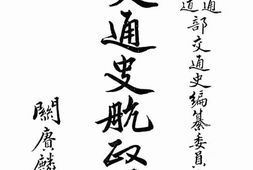 通
道部交通史編纂委員
交通史航政
關賡麟